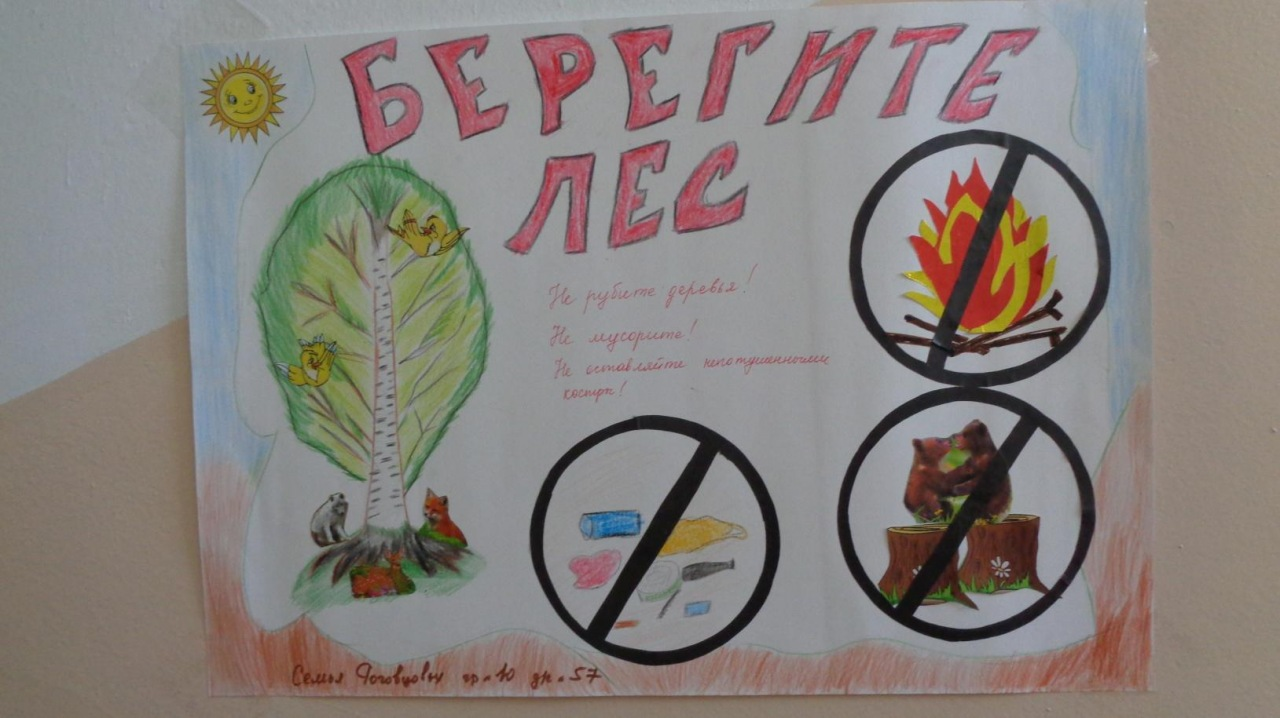 БЕРЕГИТЕ
ЛЕС
Не рубите деревья!
Не мусорите!
Не оставляйте непотушенными
костры!
Семья гр. 10